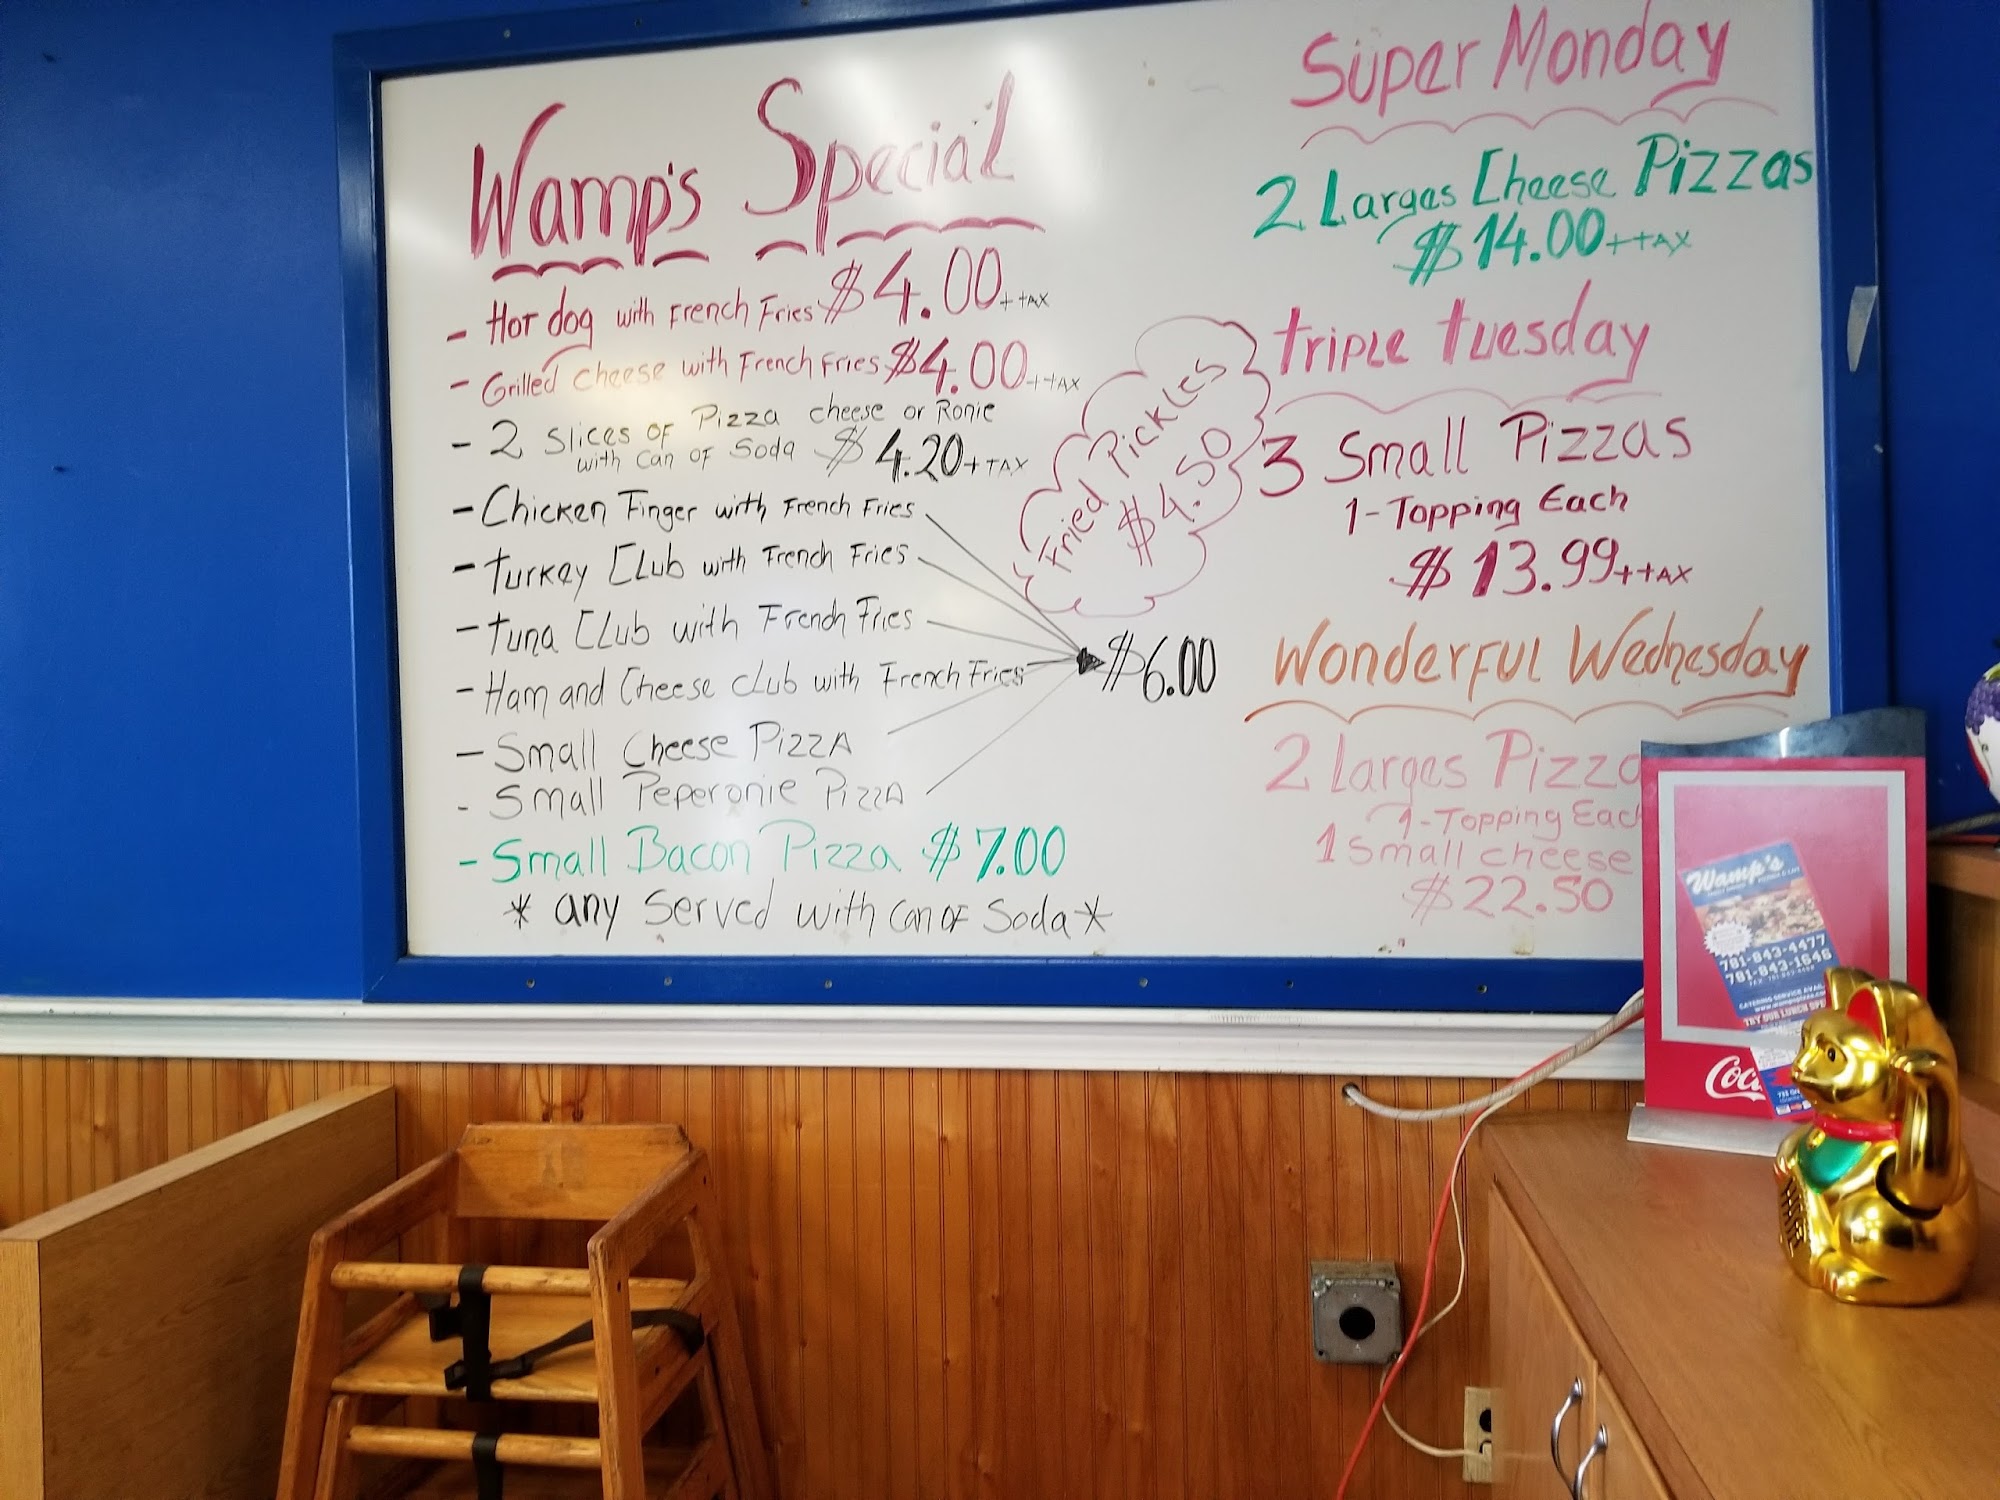 Wamp's Special
- Hot dog with French Fries $4.00 + tAX
- Grilled cheese with French Fries $4.00 + tAX
- 2 slices of Pizza cheese or Ronie
with can of Soda $4.20 + TAX
- Chicken Finger with French Fries
- turkey Club with French Fries
- tuna Club with French Fries
- Ham and Cheese club with French Fries
- Small Cheese PizzA
- Small Peperonie PizzA
$6.00
- Small Bacon Pizza $7.00
* any Served with can of Soda *
Fried Pickles
$4.50
Super Monday
2 Larges Cheese Pizzas
$14.00 + tAX
triple tuesday
3 Small Pizzas
1-Topping Each
$13.99 + tAX
Wonderful Wednesday
2 Larges Pizza
1-Topping Each
1 Small cheese
$22.50
Wamp's
781-843-4477
781-843-1646
CATERING SERVICE
TRY OUR LUNCH
Coc